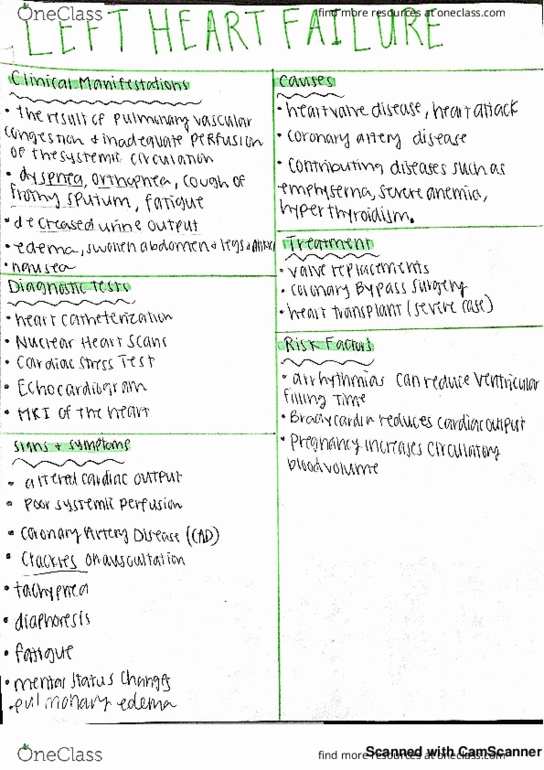 OneClass
find more resources at oneclass.com
LEFT HEART FAILURE
Clinical Manifestations
• the result of pulmonary vascular
congestion + inadequate perfusion
of the systemic circulation
• dyspnea, orthopnea, cough of
frothy sputum, fatigue
• decreased urine output
• edema, swollen abdomen + legs + ankles
• nausea
Diagnostic Tests
• heart catheterization
• Nuclear Heart Scans
• Cardiac Stress Test
• Echocardiogram
• MRI of the heart
signs + symptoms
• altered cardiac output
• poor systemic perfusion
• Coronary Artery Disease (CAD)
• Crackles on auscultation
• tachypnea
• diaphoresis
• fatigue
• mental status changes
• pulmonary edema
Causes
• heart valve disease, heart attack
• coronary artery disease
• contributing diseases such as
emphysema, severe anemia,
hyperthyroidism.
Treatment
• valve replacements
• coronary Bypass Surgery
• heart transplant (severe case)
Risk Factors
• arrhythmias can reduce ventricular
filling time
• Bradycardia reduces cardiac output
• Pregnancy increases circulatory
blood volume
OneClass
find more resources at oneclass.com
Scanned with CamScanner